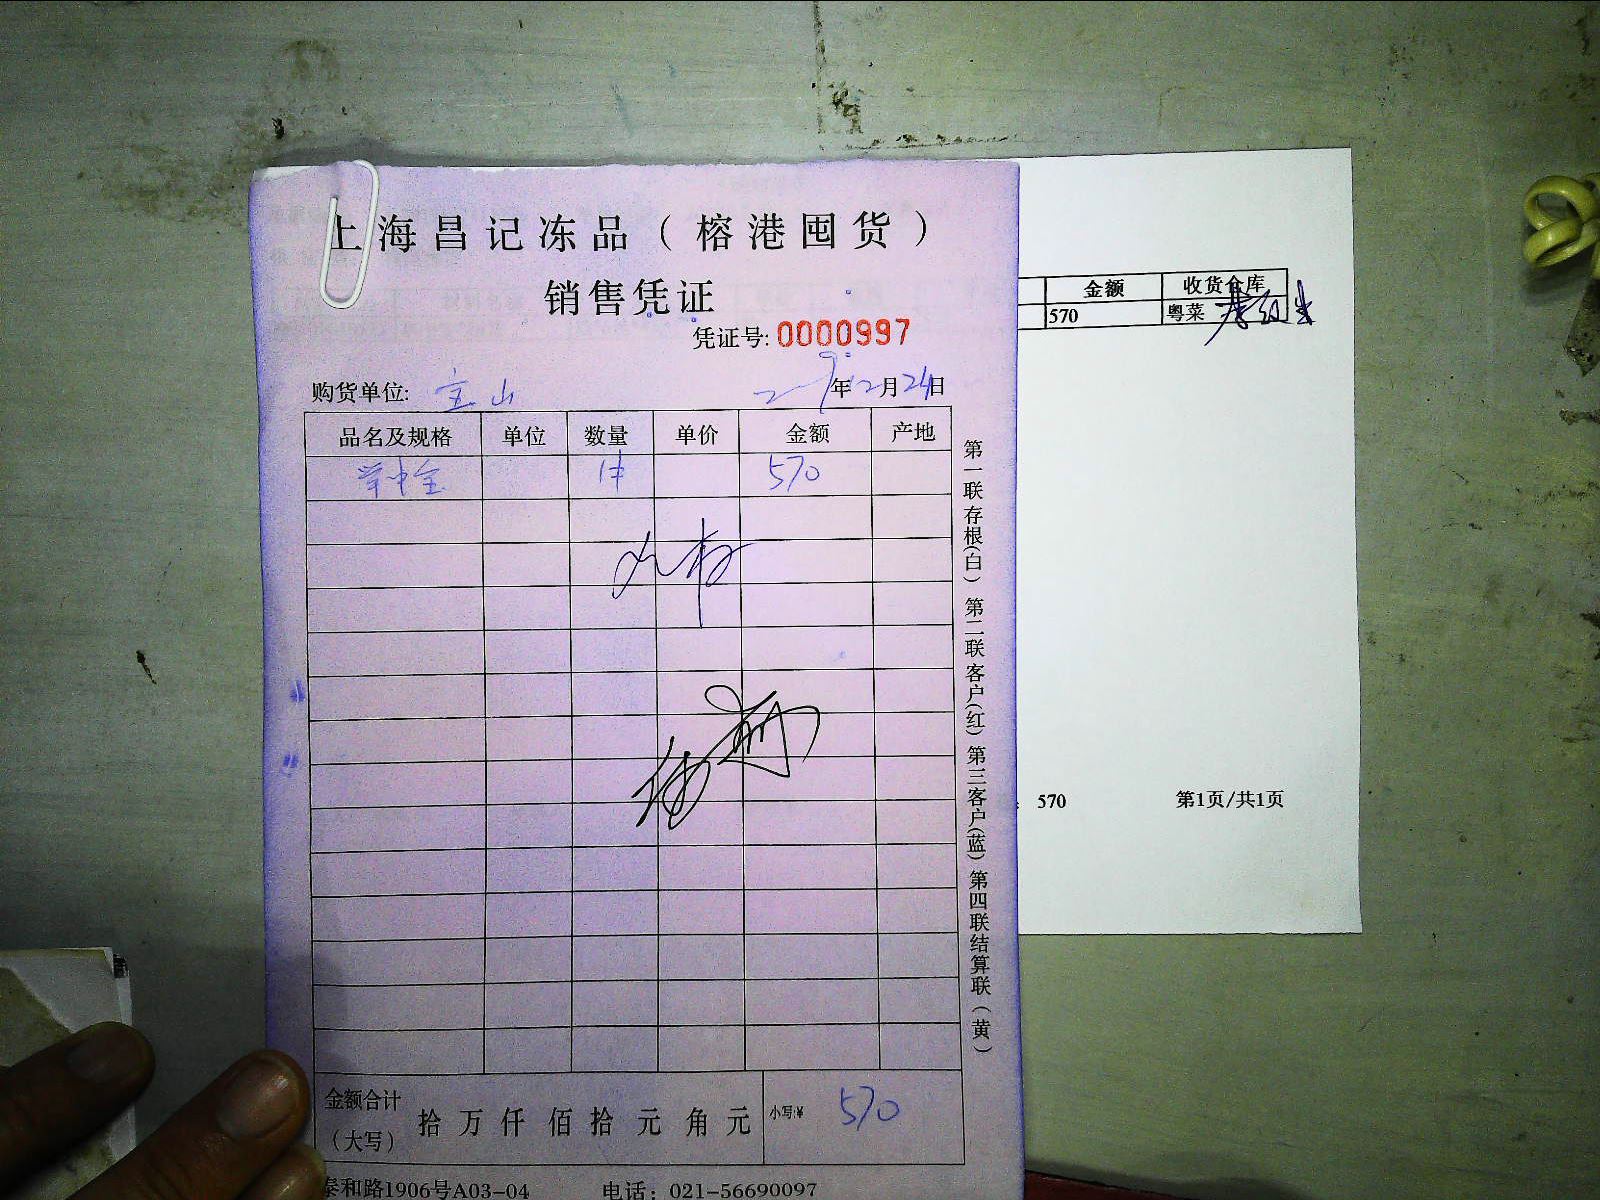 上海昌记冻品（榕港囤货）
销售凭证
凭证号: 0000997
购货单位: 宝山 年12月24日
品名及规格 单位 数量 单价 金额 产地
1件 570
金额合计（大写） 拾 万 仟 佰 拾 元 角 元 小写:¥ 570
泰和路1906号A03-04 电话：021-56690097
第一联存根(白) 第二联客户(红) 第三客户(蓝) 第四联结算联(黄)
金额 收货仓库
570 粤菜
570 第1页/共1页